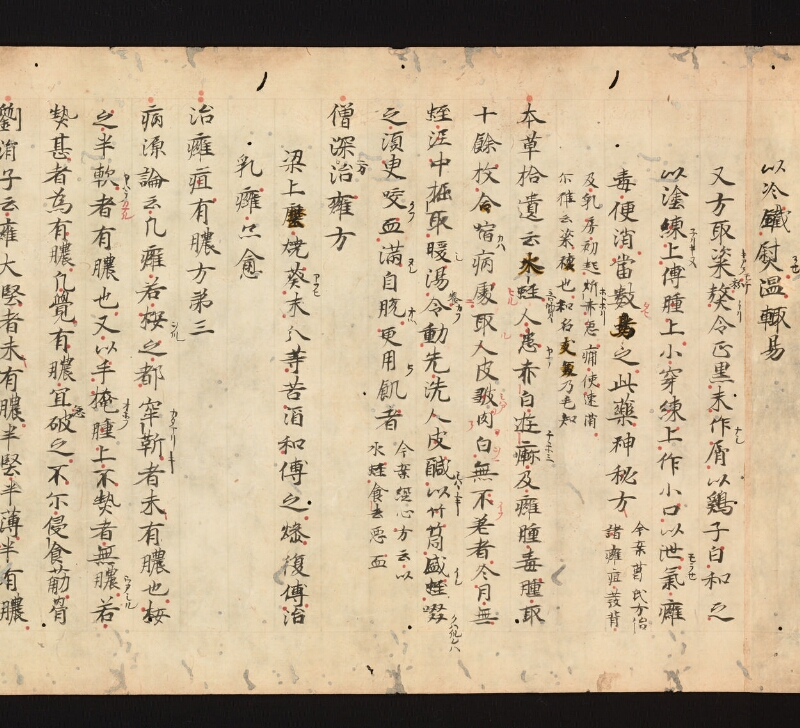 以冷鐵熨温輙易
又方取粢𥻦令正黒末作屑以鶏子白和之
以塗練上傅腫上小穿練上作小口以泄氣癰
毒便消當數易之此藥神秘方
今案葛氏方治
諸癰疽發背
及乳房初起焮赤急痛使速消
尓雅云粢稷也和名
乃毛知
本草拾遺云水蛭人患赤白遊𤻞及癰腫毒腫取
十餘枚令啗病處取人皮皺肉白無不差者冬月無
蛭汪中掘取暖湯令動先洗人皮鹹以竹筒盛蛭啜
之須臾咬血滿自脱更用飢者
今案𬒳心方云以
水蛭食去惡血
僧深治癰方
梁上塵燒葵末分等苦酒和傅之燥復傅治
乳癰亦愈
治癰疽有膿方弟三
病源論云凡癰若按之都牢靳者未有膿也按
之半軟者有膿也又以手掩腫上不熱者無膿若
熱甚者為有膿凡覺有膿宜破之不尓侵食筋骨
劉涓子云癰大堅者未有膿半堅半薄半有膿